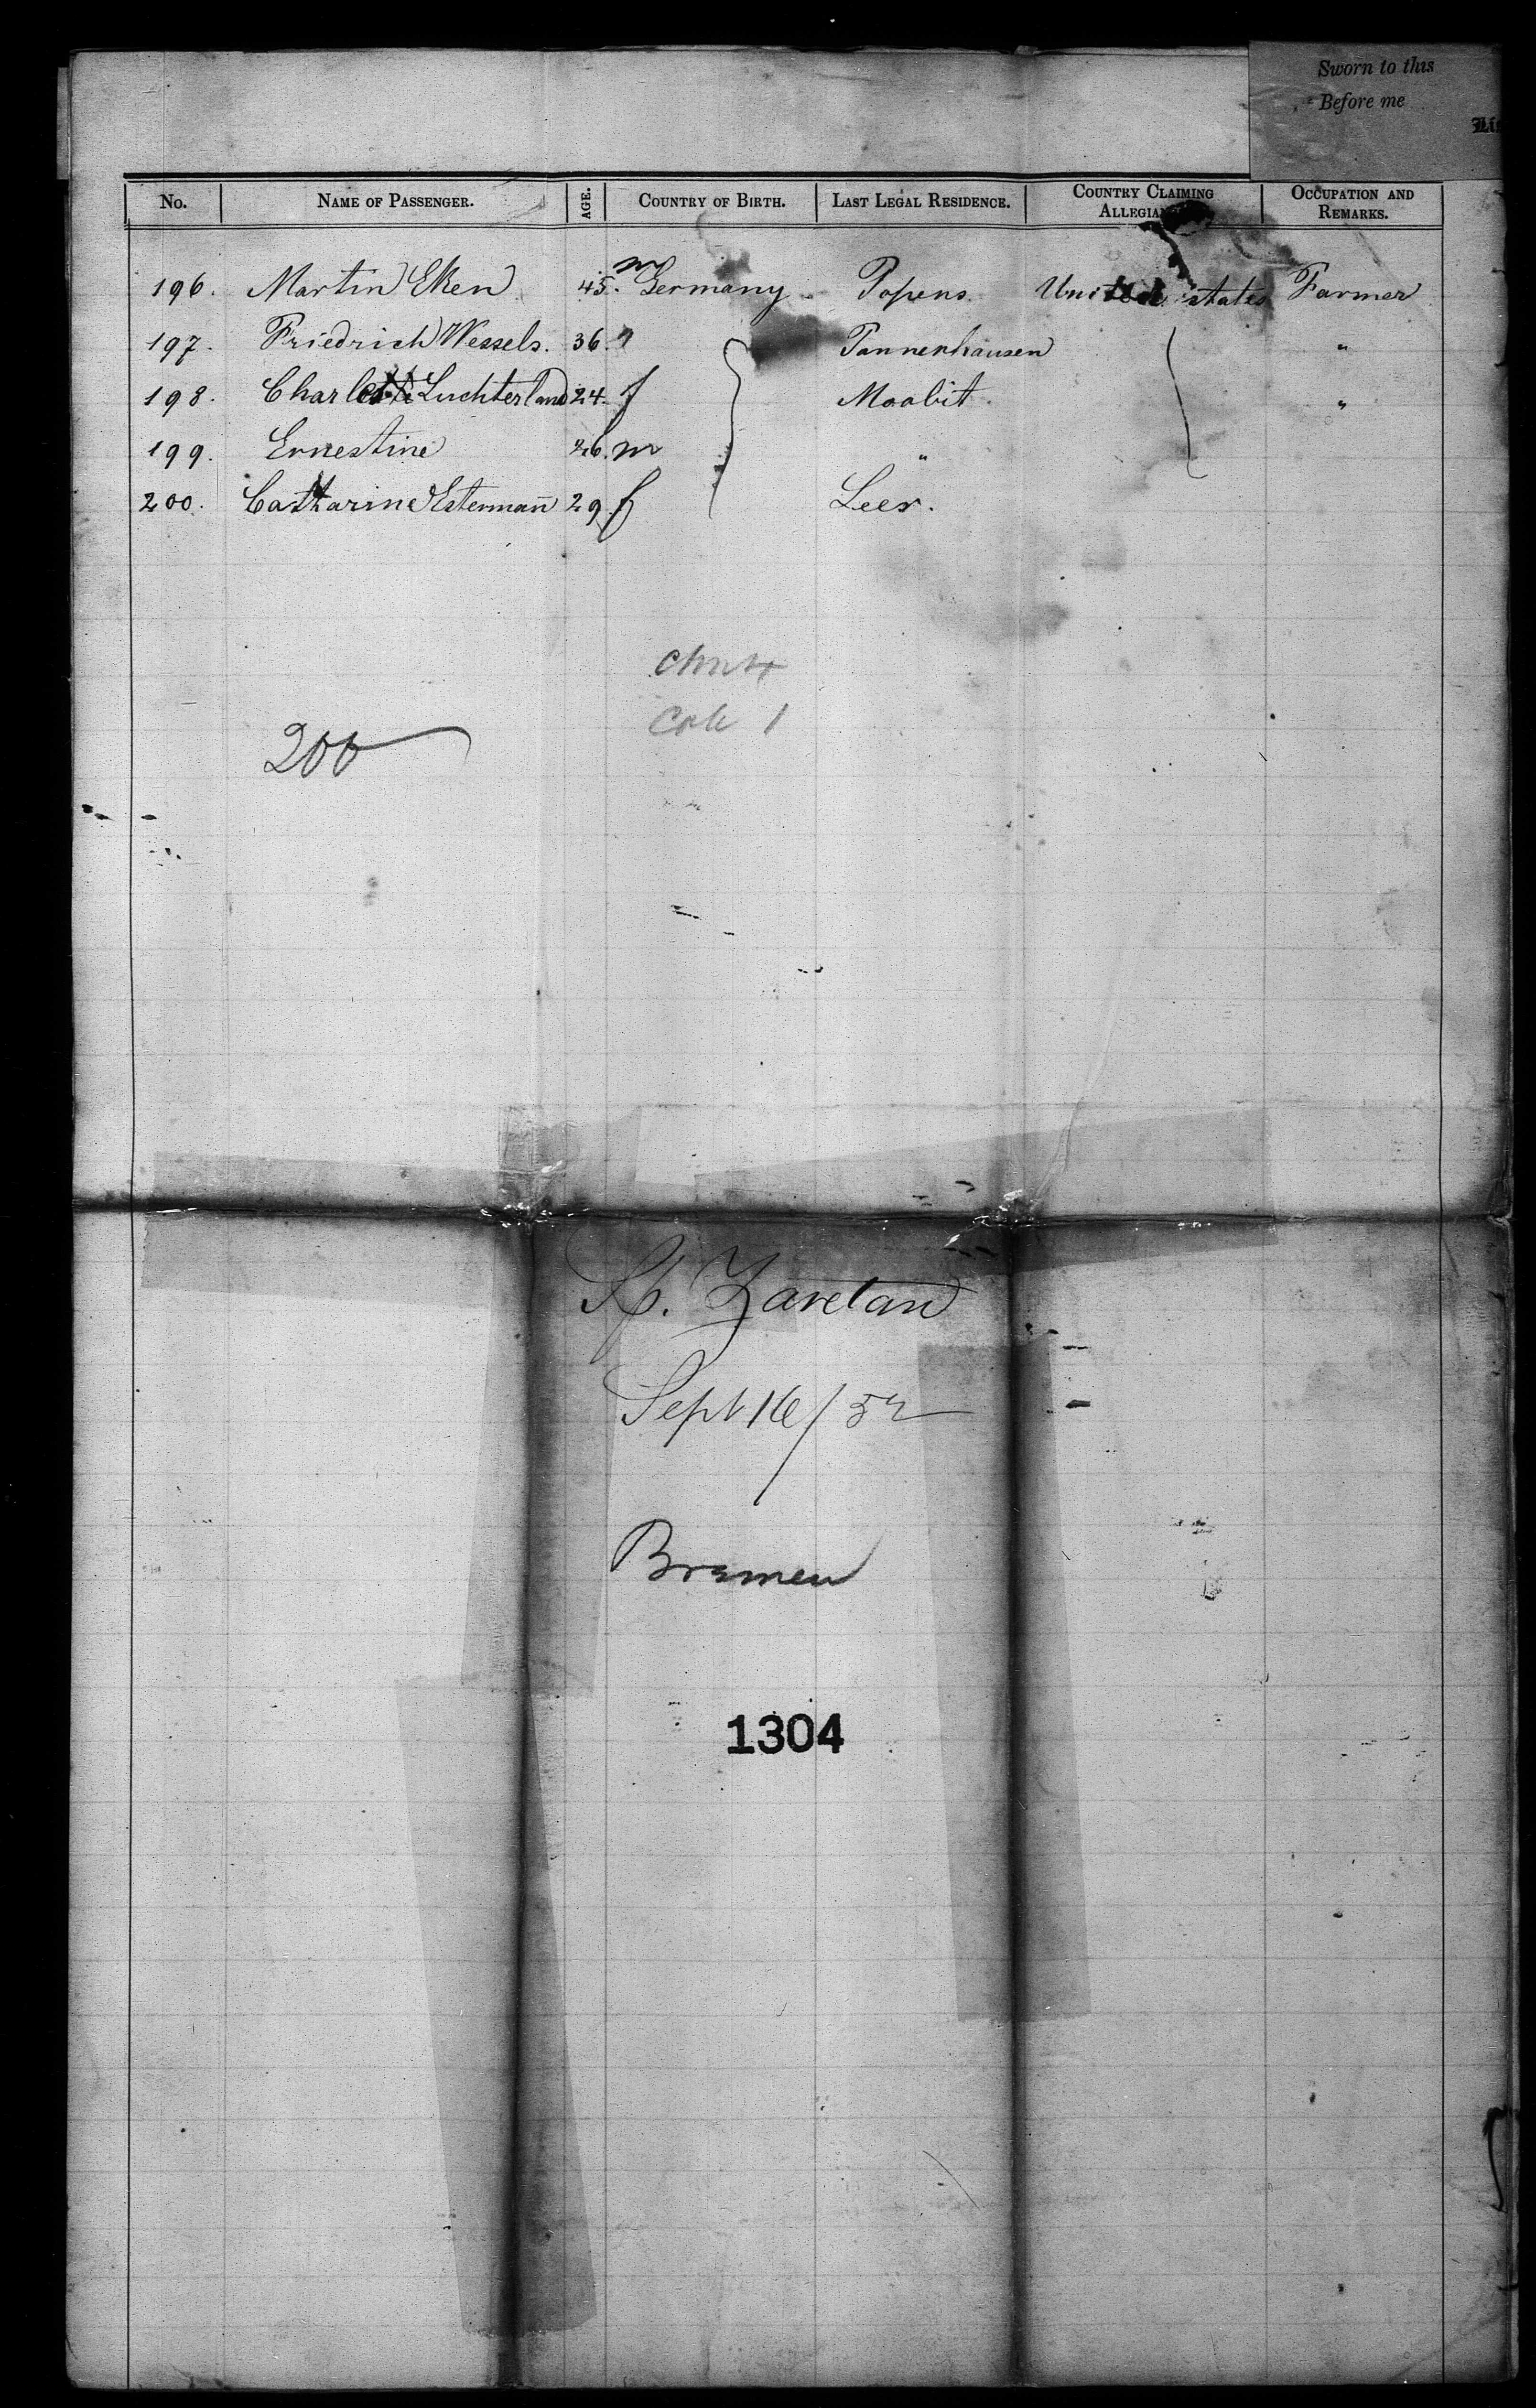 Sworn to this
Before me
No. NAME OF PASSENGER. AGE. COUNTRY OF BIRTH. LAST LEGAL RESIDENCE. COUNTRY CLAIMING ALLEGIAN OCCUPATION AND REMARKS.
196. Martin Eken 45. m Germany Popens United states Farmer
197. Friedrich Wessels. 36. " Tannenhausen "
198. Charlotte Luchterland 24. f Moabit. "
199. Ernestine 26. m "
200. Catharine Estermann 29 f Leer.
200
Sp. Zaretan
Sept 16/52
Bremen
1304